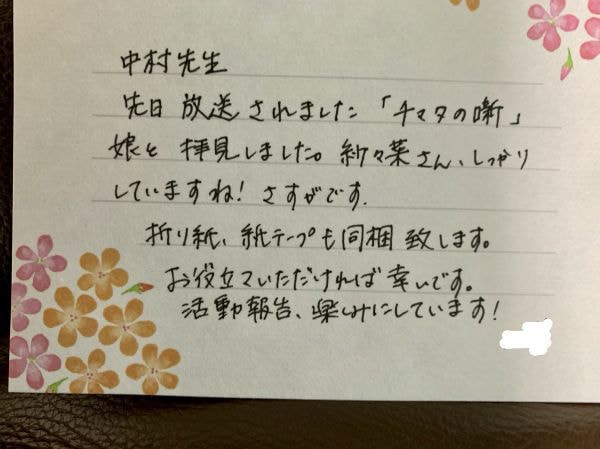 中村先生
先日 放送されました「チマタの噺」
娘と 拝見しました。紗々菜さん、しっかり
していますね！さすがです.
折り紙、紙テープも同梱致します。
お役立ていただければ幸いです。
活動報告、楽しみにしています！